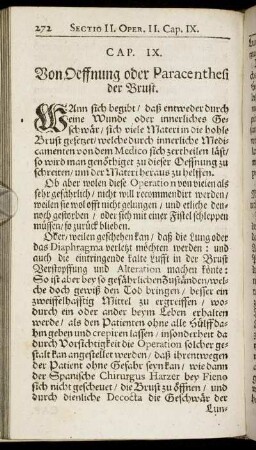 272 SECTIO II. OPER. II. Cap. IX.
CAP. IX.
Von Oeffnung oder Paracenthesi
der Brust.
WAnn sich begibt / daß entweder durch
eine Wunde oder innerliches Ge-
schwär / sich viele Materi in die hohle
Brust gesetzet / welche durch innerliche Medi-
camenten von dem Medico sich zertheilen läst /
so wird man genöthiget zu dieser Oeffnung zu
schreiten / um der Materi heraus zu helffen.
Ob aber wolen diese Operation von vielen als
sehr gefährlich / nicht will recommendirt werden /
weilen sie wol offt nicht gelungen / und etliche den-
noch gestorben / oder sich mit einer Fistel schleppen
müssen / so zurück blieben.
Oder / weilen geschehen kan / daß die Lung oder
das Diaphragma verletzt möchten werden: und
auch die eintringende kalte Lufft in der Brust
Verstopffung und Alteration machen könte:
So ist aber bey so gefährlichen Zuständen / wel-
che doch gewiß den Tod bringen / besser ein
zweiffelhafftig Mittel zu ergreiffen / wo-
durch ein oder ander beym Leben erhalten
werde / als den Patienten ohne alle Hülff da-
hin gehen und crepiren lassen / insonderheit da
durch Vorsichtigkeit die Operation solcher ge-
stalt kan angestellet werden / daß ihrentwegen
der Patient ohne Gefahr seyn kan / wie dann
der Spanische Chirurgus Harzer bey Fieno
sich nicht gescheuet / die Brust zu öffnen / und
durch dienliche Decocta die Geschwär der
Lun-